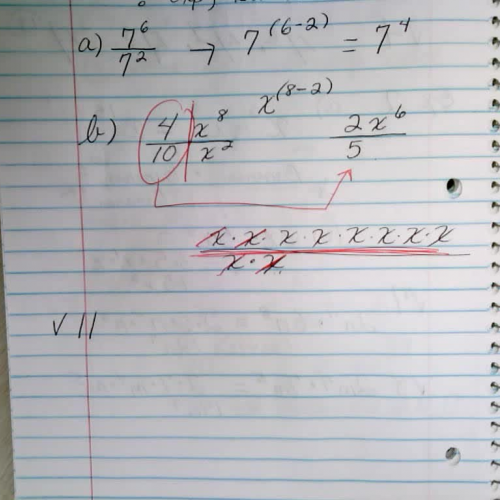 a) 7^6/7^2 → 7^(6-2) = 7^4
b) 4/10 x^8/x^2 x^(8-2) 2x^6/5
x·x·x·x·x·x·x·x
x·x
√ 11